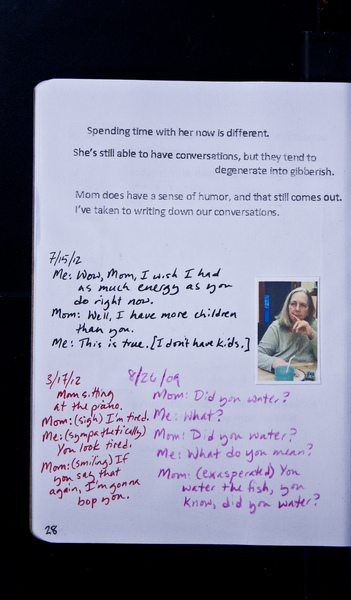 Spending time with her now is different.
She's still able to have conversations, but they tend to
degenerate into gibberish.
Mom does have a sense of humor, and that still comes out.
I've taken to writing down our conversations.
7/15/12
Me: Wow, Mom, I wish I had
as much energy as you
do right now.
Mom: Well, I have more children
than you.
Me: This is true. [I don't have kids.]
3/17/12
Mom sitting
at the piano.
Mom: (sigh) I'm tired.
Me: (sympathetically)
You look tired.
Mom: (smiling) If
you say that
again, I'm gonna
bop you.
8/26/09
Mom: Did you water?
Me: What?
Mom: Did you water?
Me: What do you mean?
Mom: (exasperated) You
water the fish, you
know, did you water?
28